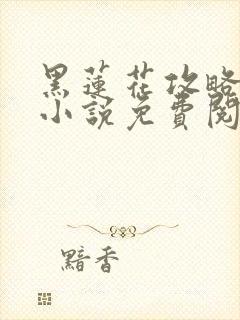 黑蓮花攻略
小說免費閱
黯香